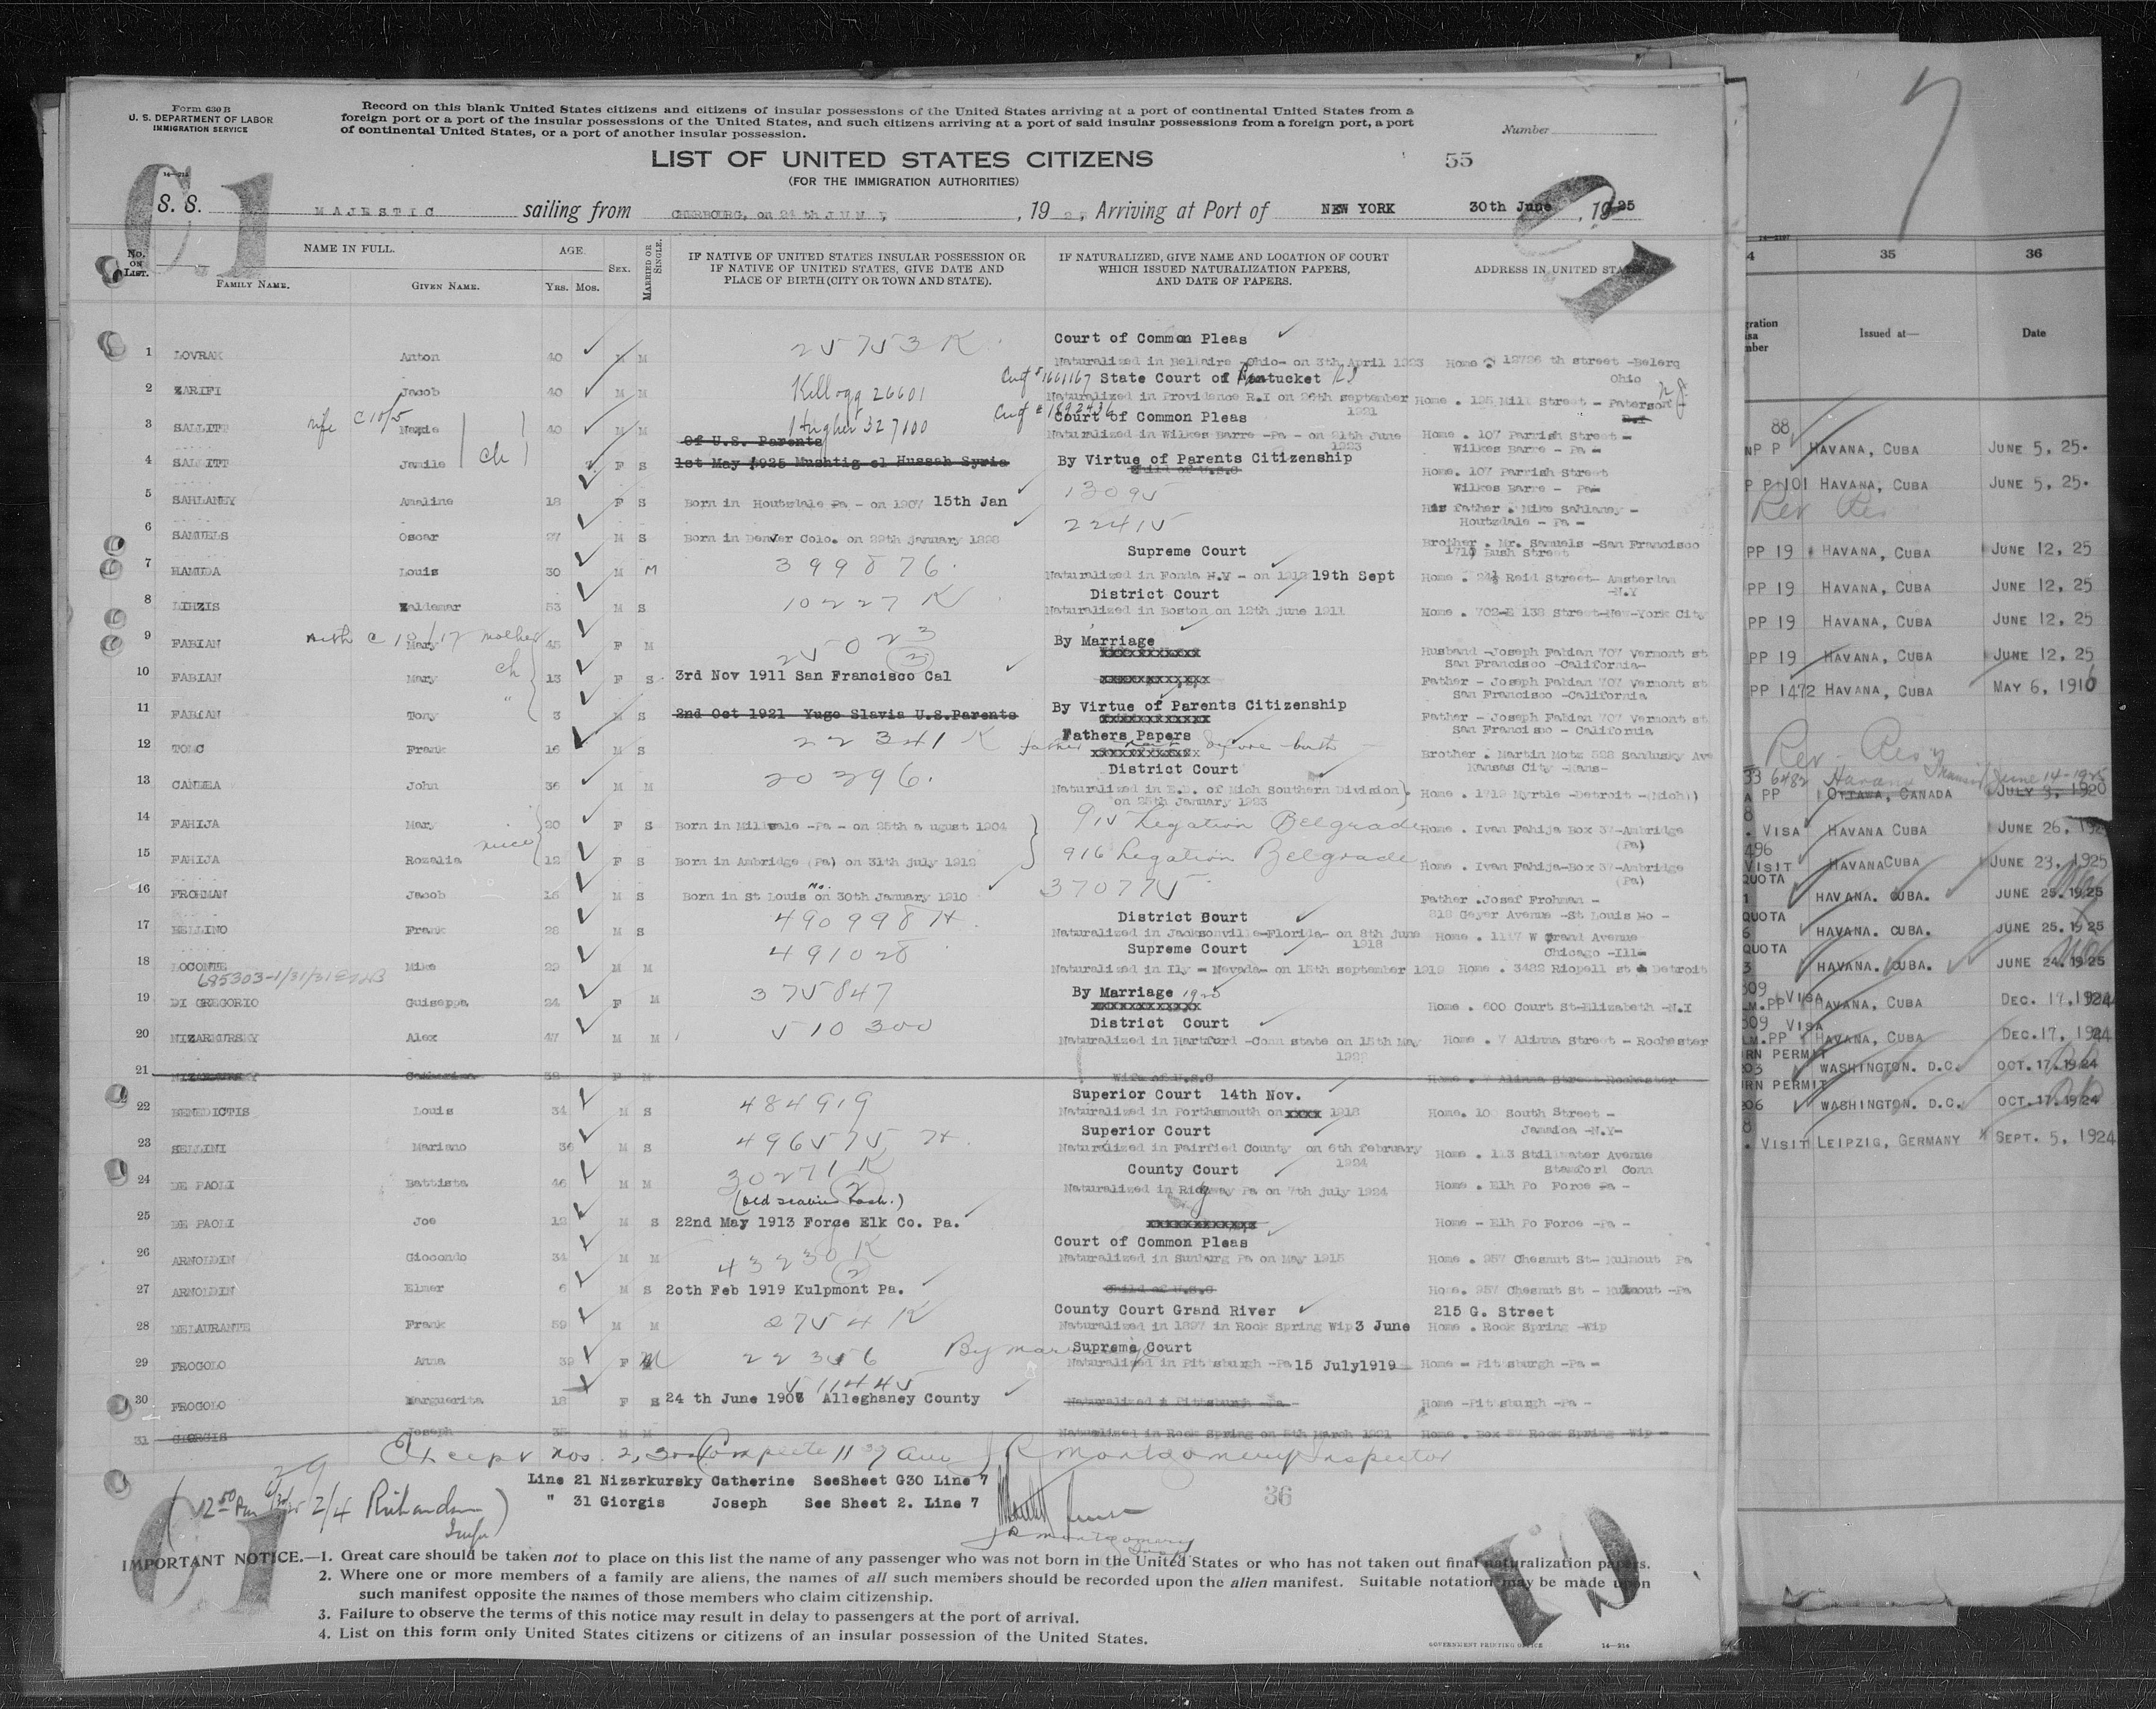 Form 630 B
U. S. DEPARTMENT OF LABOR
IMMIGRATION SERVICE
Record on this blank United States citizens and citizens of insular possessions of the United States arriving at a port of continental United States from a
foreign port or a port of the insular possessions of the United States, and such citizens arriving at a port of said insular possessions from a foreign port, a port
of continental United States, or a port of another insular possession.
Number
LIST OF UNITED STATES CITIZENS
55
(FOR THE IMMIGRATION AUTHORITIES)
S. S. MAJESTIC sailing from CHERBOURG, on 24 th JUNE, 19 25, Arriving at Port of NEW YORK 30th June, 1925
No. ON LIST.
NAME IN FULL.
FAMILY NAME.
GIVEN NAME.
AGE.
YRS. MOS.
SEX.
MARRIED OR SINGLE.
IF NATIVE OF UNITED STATES INSULAR POSSESSION OR
IF NATIVE OF UNITED STATES, GIVE DATE AND
PLACE OF BIRTH (CITY OR TOWN AND STATE).
IF NATURALIZED, GIVE NAME AND LOCATION OF COURT
WHICH ISSUED NATURALIZATION PAPERS,
AND DATE OF PAPERS.
ADDRESS IN UNITED STATES
25753 K Court of Common Pleas
1 LOVRAK Anton 40 M M Naturalized in Bellaire -Ohio- on 3th April 1923 Home 12726 th street -Belerq
Ohio
Kellogg 26601 State Court of
2 ZARIFI Jacob 40 M M Naturalized in Providence R.I on 26th september 1921 Home . 125 Mill Street - Paterson N.J.
wife C 10/5 Court of Common Pleas
3 SALLITT 40 M M Naturalized in Wilkes Barre -Pa - on 21th June 1923 Home . 107 Parrish Street -
Wilkes Barre - Pa -
Of U.S. Parents
4 SALLITT Jamile ch F S 1st May 1925 Mushtig el Hussah Syria By Virtue of Parents Citizenship Child of U.S.C Home. 107 Parrish Street
Wilkes Barre - Pa-
5 SAHLANEY Amaline 18 F S Born in Houtzdale Pa - on 1907 15th Jan 13095 His father . Mike Sahlaney -
Houtzdale - Pa -
6 SAMUELS Oscar 27 M S Born in Denver Colo. on 29th january 1898 22415 Brother . Mr. Samuels -San Francisco
1710 Bush Street
399876 Supreme Court
7 HAMUDA Louis 30 M M Naturalized in Fonda N.Y - on 1912 19th Sept Home . 24½ Reid Street- Amsterdam
-N.Y
10227 K District Court
8 LIHZIS Waldemar 53 M S Naturalized in Boston on 12th june 1911 Home . 702-E 138 Street-New-York City
25023 By Marriage
9 FABIAN C 10/17 mother Mary 45 F M xxxxxxxxxxxx Husband -Joseph Fabian 707 Vermont st
San Francisco -California-
10 FABIAN Mary ch 13 F S 3rd Nov 1911 San Francisco Cal xxxxxxxxxxxxx Father - Joseph Fabian 707 Vermont st
San Francisco -California
11 FABIAN Tony " 3 M S 2nd Oct 1921 Yugo Slavia U.S.Parents By Virtue of Parents Citizenship xxxxxxxxxxxxx Father - Joseph Fabian 707 Vermont st
San Francisco - California
22341 K Fathers Papers
12 TOMC Frank 16 M S father before birth Brother . Martin Motz 528 Sandusky Ave
Kansas City -Kans-
20296. District Court
13 CANDEA John 36 M M Naturalized in E.D. of Mich Southern Division
on 25th January 1923 Home . 1719 Myrtle -Detroit -(Mich)
14 FAHIJA Mary 20 F S Born in Millvale -Pa - on 25th a ugust 1904 915 Legation Belgrade Home . Ivan Fahija Box 37-Ambridge
(Pa)
15 FAHIJA Rozalia 12 F S Born in Ambridge (Pa) on 31th july 1912 916 Legation Belgrade Home . Ivan Fahija-Box 37-Ambridge
(Pa)
16 FROHMAN Jacob 15 M S Born in St Louis Mo. on 30th January 1910 370775 Father .Josef Frohman -
818 Geyer Avenue -St Louis Mo -
490998 H District Court
17 BELLINO Frank 28 M S Naturalized in Jacksonville-Florida- on 8th june 1918 Home . 1117 W Grand Avenue
Chicago -Ill-
491028 Supreme Court
18 LOCONTE Mike 29 M M Naturalized in Ily - Nevada- on 15th september 1919 Home . 3482 Riopell st Detroit
685303-1/31/31
375847 By Marriage
19 DI GREGORIO Guiseppa 24 F M xxxxxxxxxxxxx Home . 600 Court St-Elizabeth -N.J
510300 District Court
20 NIZARKURSKY Alex 47 M M Naturalized in Hartfurd -Conn state on 15th May Home . 7 Alinna Street - Rochester
21 NIZARKURSKY Catherine 38 F M Wife of U.S.C Home . 7 Alinna Street Rochester
484919 Superior Court 14th Nov.
22 BENEDICTIS Louis 34 M S Naturalized in Porthsmouth on xxxx 1918 Home. 10 South Street -
Jamaica -N.Y-
496575 H. Superior Court
23 BELLINI Mariano 36 M S Naturalized in Fairfied County on 6th february 1924 Home . 113 Stillwater Avenue
Stamford Conn
30271 K (2) County Court
24 DE PAOLI Battista 46 M M Naturalized in Ridgway Pa on 7th july 1924 Home . Elh Po Force -Pa -
25 DE PAOLI Joe 12 M S 22nd May 1913 Force Elk Co. Pa. xxxxxxxxxxxxx Home - Elh Po Force -Pa -
43230 K (2) Court of Common Pleas
26 ARNOLDIN Giocondo 34 M M Naturalized in Sunburg Pa on May 1915 Home . 257 Chesnut St- Kulmout Pa
27 ARNOLDIN Elmer 6 M S 2oth Feb 1919 Kulpmont Pa. Child of U.S.C Home. 257 Chesnut St - Kulmout -Pa
2754 K County Court Grand River 215 G. Street
28 DELAURANTE Frank 59 M M Naturalized in 1897 in Rock Spring Wip 3 June Home . Rock Spring -Wip
22356 Supreme Court
29 FROGOLO Anna 39 F M Naturalized in Pittsburgh -Pa 15 July1919 Home - Pittsburgh -Pa -
511445
30 FROGOLO Marguerita 18 F S 24 th June 1907 Alleghaney County Naturalized Pittsburgh -Pa - Home -Pittsburgh -Pa -
31 GIORGIS Joseph 35 M M Naturalized in Rock Spring on 5th March 1921 Home . Box 37 Rock Spring -Wip -
Except nos. 2, 3 Complete R Montgomery Inspector
Line 21 Nizarkursky Catherine SeeSheet G30 Line 7
" 31 Giorgis Joseph See Sheet 2. Line 7
36
2/4 Richardson
IMPORTANT NOTICE.—1. Great care should be taken not to place on this list the name of any passenger who was not born in the United States or who has not taken out final naturalization papers.
2. Where one or more members of a family are aliens, the names of all such members should be recorded upon the alien manifest. Suitable notation may be made upon
such manifest opposite the names of those members who claim citizenship.
3. Failure to observe the terms of this notice may result in delay to passengers at the port of arrival.
4. List on this form only United States citizens or citizens of an insular possession of the United States.
GOVERNMENT PRINTING OFFICE 14—214
7
4 35 36
Issued at— Date
88
NP P HAVANA, CUBA JUNE 5, 25.
P P 101 HAVANA, CUBA JUNE 5, 25.
Rev Res
PP 19 HAVANA, CUBA JUNE 12, 25
PP 19 HAVANA, CUBA JUNE 12, 25
PP 19 HAVANA, CUBA JUNE 12, 25
PP 19 HAVANA, CUBA JUNE 12, 25
PP 1472 HAVANA, CUBA MAY 6, 1916
Rev Res
33 6482 Havana June 14-1925
PP OTTAWA, CANADA JULY 3, 1920
VISA HAVANA CUBA JUNE 26, 1925
496
VISIT HAVANACUBA JUNE 23, 1925
QUOTA
HAVANA. CUBA. JUNE 25.1925
QUOTA
HAVANA. CUBA. JUNE 25.1925
QUOTA
HAVANA. CUBA. JUNE 24.1925
309 VISA
LM.PP HAVANA, CUBA DEC. 17, 1924
309 VISA
LM.PP HAVANA, CUBA DEC.17, 1924
RN PERMIT
03 WASHINGTON. D.C. OCT.17.1924
URN PERMIT
06 WASHINGTON. D.C. OCT.17.1924
VISIT LEIPZIG, GERMANY SEPT. 5, 1924